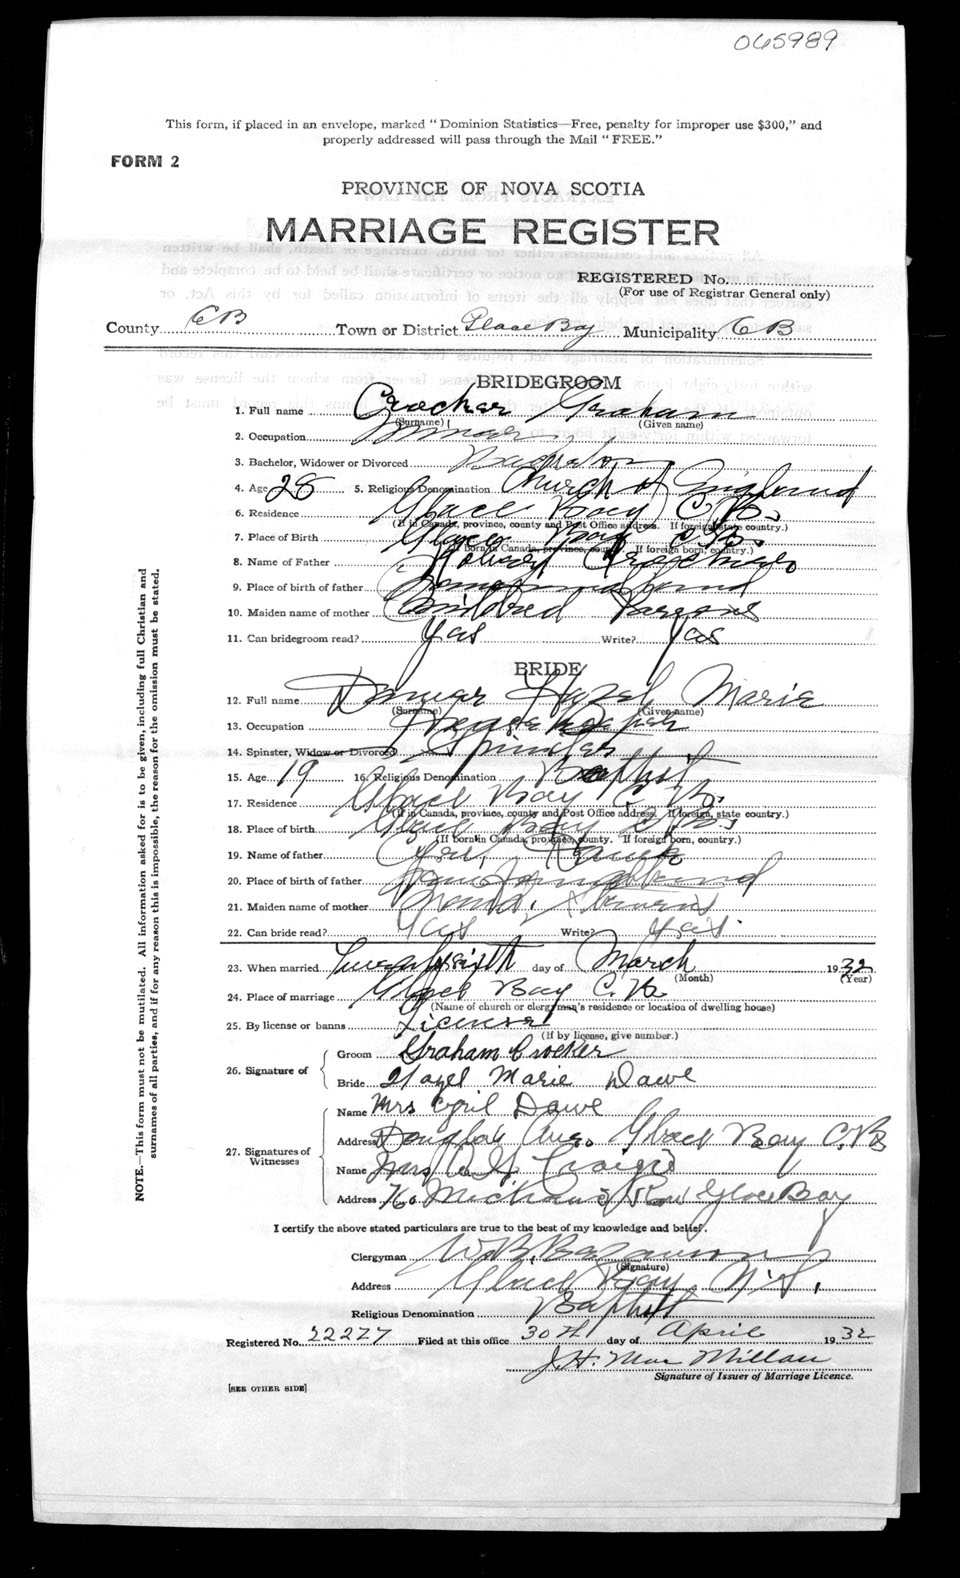 065989
This form, if placed in an envelope, marked "Dominion Statistics—Free, penalty for improper use $300," and
properly addressed will pass through the Mail "FREE."
FORM 2
PROVINCE OF NOVA SCOTIA
MARRIAGE REGISTER
REGISTERED No.
(For use of Registrar General only)
County C B Town or District Glace Bay Municipality C B
BRIDEGROOM
1. Full name Crocker Graham
(Surname) (Given name)
2. Occupation
3. Bachelor, Widower or Divorced Bachelor
4. Age 28 5. Religious Denomination Church of England
6. Residence Glace Bay C.B.
(If in Canada, province, county and Post Office address. If foreign, state country.)
7. Place of Birth Glace Bay C.B.
(If born in Canada, province, county. If foreign born, country.)
8. Name of Father
9. Place of birth of father
10. Maiden name of mother Mildred Parsons
11. Can bridegroom read? Yas Write? Yas
BRIDE
12. Full name Hazel Marie
(Surname) (Given name)
13. Occupation
14. Spinster, Widow or Divorced Spinster
15. Age 19 16. Religious Denomination Baptist
17. Residence Glace Bay C. B.
(If in Canada, province, county and Post Office address. If foreign, state country.)
18. Place of birth Glace Bay C.B.
(If born in Canada, province, county. If foreign born, country.)
19. Name of father
20. Place of birth of father
21. Maiden name of mother
22. Can bride read? Yas Write? Yas.
23. When married Twenty sixth day of March 1932
(Month) (Year)
24. Place of marriage Glace Bay C. B.
(Name of church or clergyman's residence or location of dwelling house)
25. By license or banns License
(If by license, give number.)
26. Signature of
Groom Graham Crocker
Bride Hazel Marie Dawe
27. Signatures of Witnesses
Name Mrs Cyril Dawe
Address Douglas Ave. Glace Bay C.B
Name Mrs
Address 76 Row Glace Bay
I certify the above stated particulars are true to the best of my knowledge and belief.
Clergyman W.B. Bezanson
(Signature)
Address Glace Bay, N.S.
Religious Denomination Baptist
Registered No. 22227 Filed at this office 30th day of April 1932
J.H. Mac Millan
Signature of Issuer of Marriage Licence.
[SEE OTHER SIDE]
NOTE.—This form must not be mutilated. All information asked for is to be given, including full Christian and
surnames of all parties, and if for any reason this is impossible, the reason for the omission must be stated.